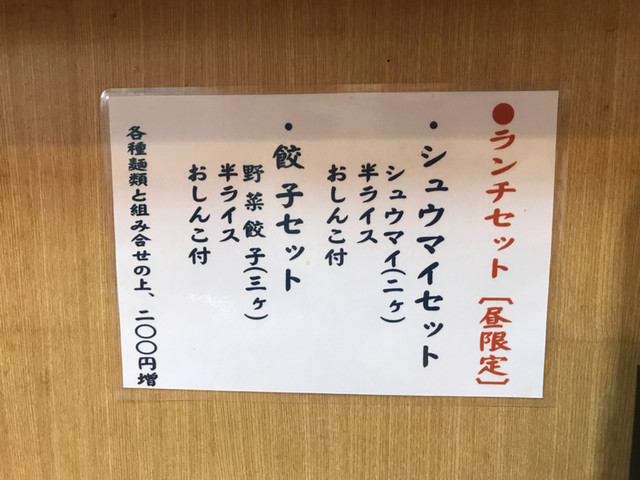 ●ランチセット〔昼限定〕
・シュウマイセット
シュウマイ(二ヶ)
半ライス
おしんこ付
・餃子セット
野菜餃子(三ヶ)
半ライス
おしんこ付
各種麺類と組み合せの上、二〇〇円増